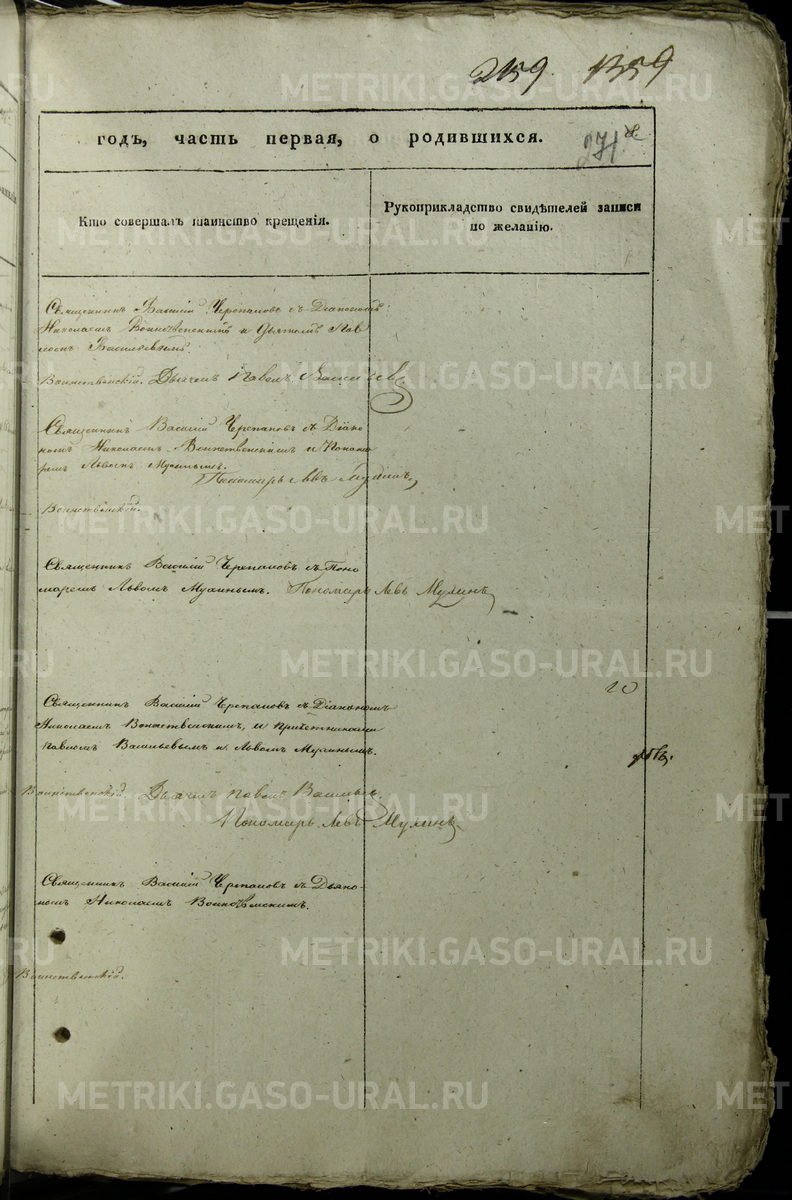 2159 1359
годъ, часть первая, о родившихся. 271
Кто совершалъ таинство крещенія.
Рукоприкладство свидѣтелей записи по желанію.
Священникъ Василій Черепановъ съ Діакономъ
Николаемъ Воинственскимъ и Дьячкомъ Пав
ломъ Васильевымъ.
Воинственскій. Дьячекъ Павелъ
Священникъ Василій Черепановъ съ Діако
номъ Николаемъ Воинственскимъ и Понома
ремъ Львомъ Мухинымъ.
Пономарь Левъ Мухинъ
Воинственскій.
Священникъ Василій Черепановъ съ Поно
маремъ Львомъ Мухинымъ. Пономарь Левъ Мухинъ
20
Священникъ Василій Черепановъ съ Діакономъ
Николаемъ Воинственскимъ, и причетниками
Павломъ Васильевымъ и Львомъ Мухинымъ.
Воинственскій Дьячекъ Павелъ Васильев
Пономарь Левъ Мухинъ
Священникъ Василій Черепановъ съ Дьяко
номъ Николаемъ Воинственскимъ.
Воинственскій.
METRIKI.GASO-URAL.RU